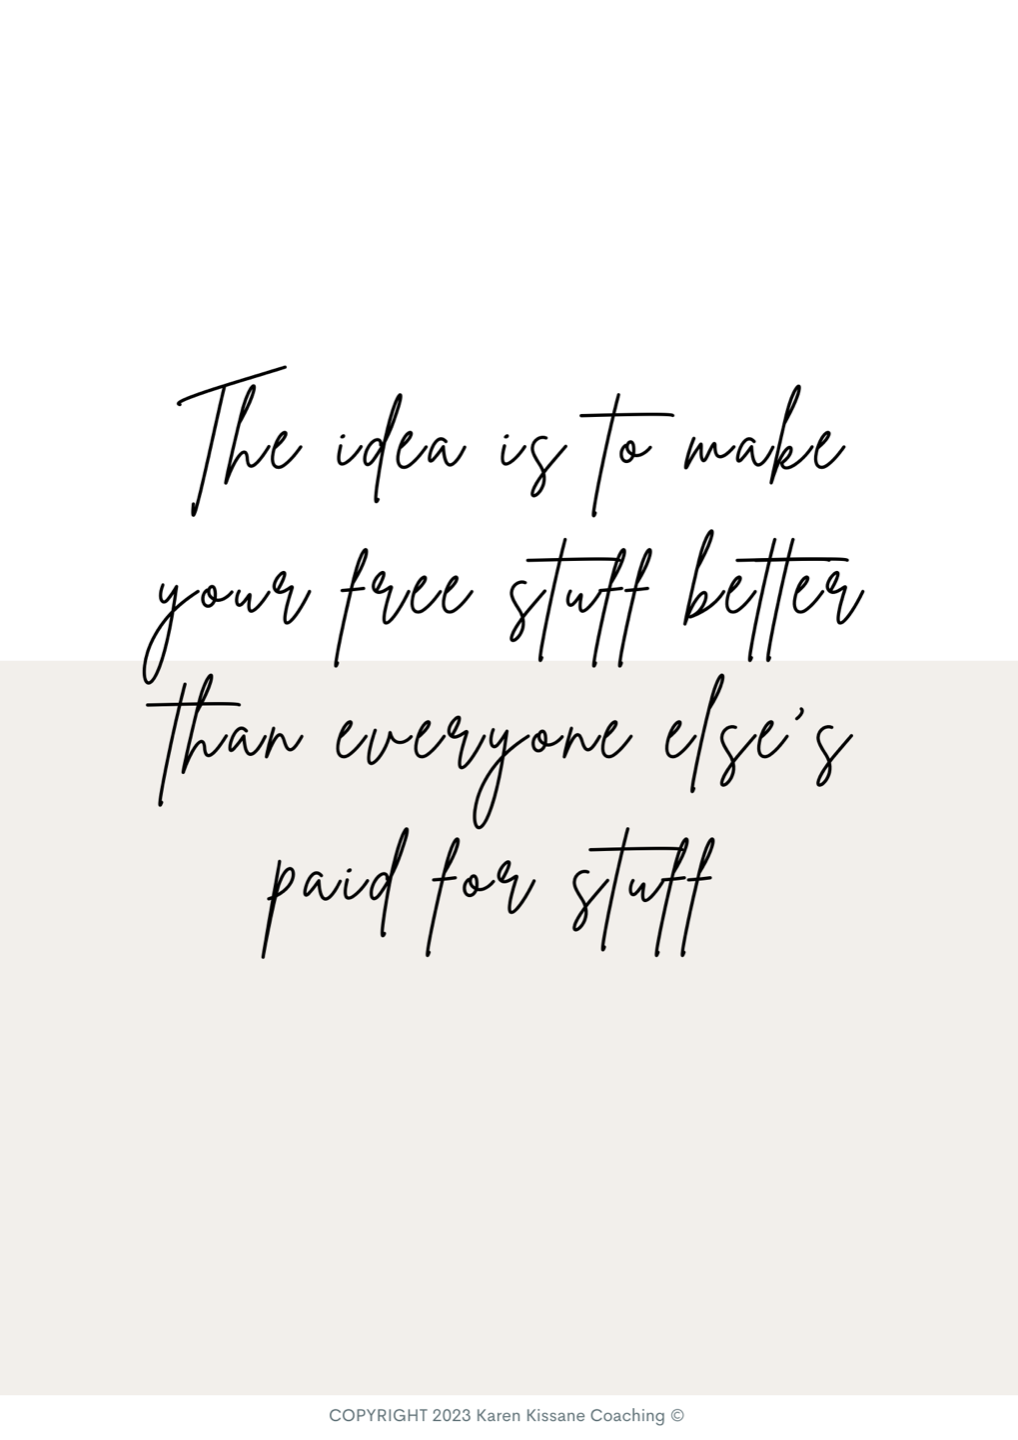 The idea is to make
your free stuff better
than everyone else's
paid for stuff
COPYRIGHT 2023 Karen Kissane Coaching ©